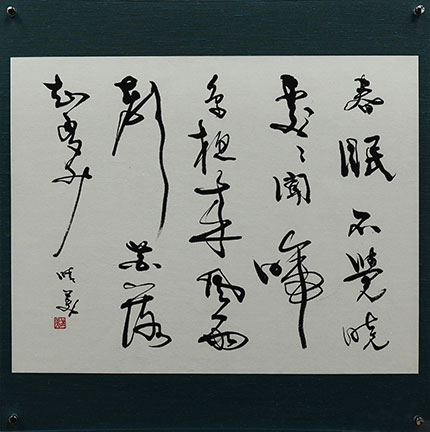 春眠不覺曉
處々聞啼
鳥夜来風雨
聲花落
知多少